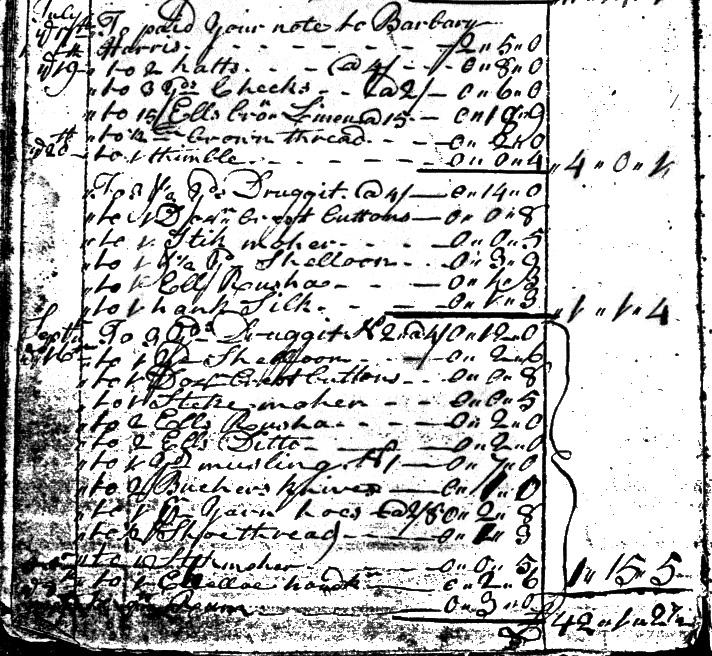 July
17th To paid your note to Barbary
Harris - - - - - 2 " 5 " 0
19th " to 2 hatts - - @ 4/ - 0 " 8 " 0
" to 3 yds Checks - @ 2/ - 0 " 6 " 0
" to 15 Ells bron Linen @ 15 - 0 " 18 " 9
" to brown thread - - 0 " 2 " 0
28th " to 1 thimble - - - 0 " 0 " 4 " 4 " 0 " 1
To 3 1/2 yds Druggit @ 4/ - 0 " 14 " 0
" to 1 Dozn brest buttons - 0 " 0 " 8
" to 1 Stik moher - - 0 " 0 " 5
" to 1 1/2 yd Shelloon - - 0 " 3 " 9
" to 1 Ell Rousha - - 0 " 1 " 3
" to 1 hank Silk - - 0 " 1 " 3 " 1 " 1 " 4
Septr 16th To 3 yds Druggit N 2 @ 4/ 0 " 12 " 0
" to 1 yd Shelloon - - 0 " 2 " 6
" to 1 Doz brest buttons - - 0 " 0 " 8
" to 1 Steke moher - - 0 " 0 " 5
" to 2 Ells Rousha - - 0 " 2 " 0
" to 2 Ells Ditto - - 0 " 2 " 0
" to 1 yd musling N 1 - 0 " 7 " 0
" to 2 Buchers knives - 0 " 1 " 0
" to 1 pr Yarn hoes @ 2/8 0 " 2 " 8
" to Shoe thread - 0 " 1 " 3
" to moher - - 0 " 0 " 5 1 " 15 " 5
" to 1 hank - 0 " 2 " 6
0 " 3 " 0
42 " 1 " 2 1/2